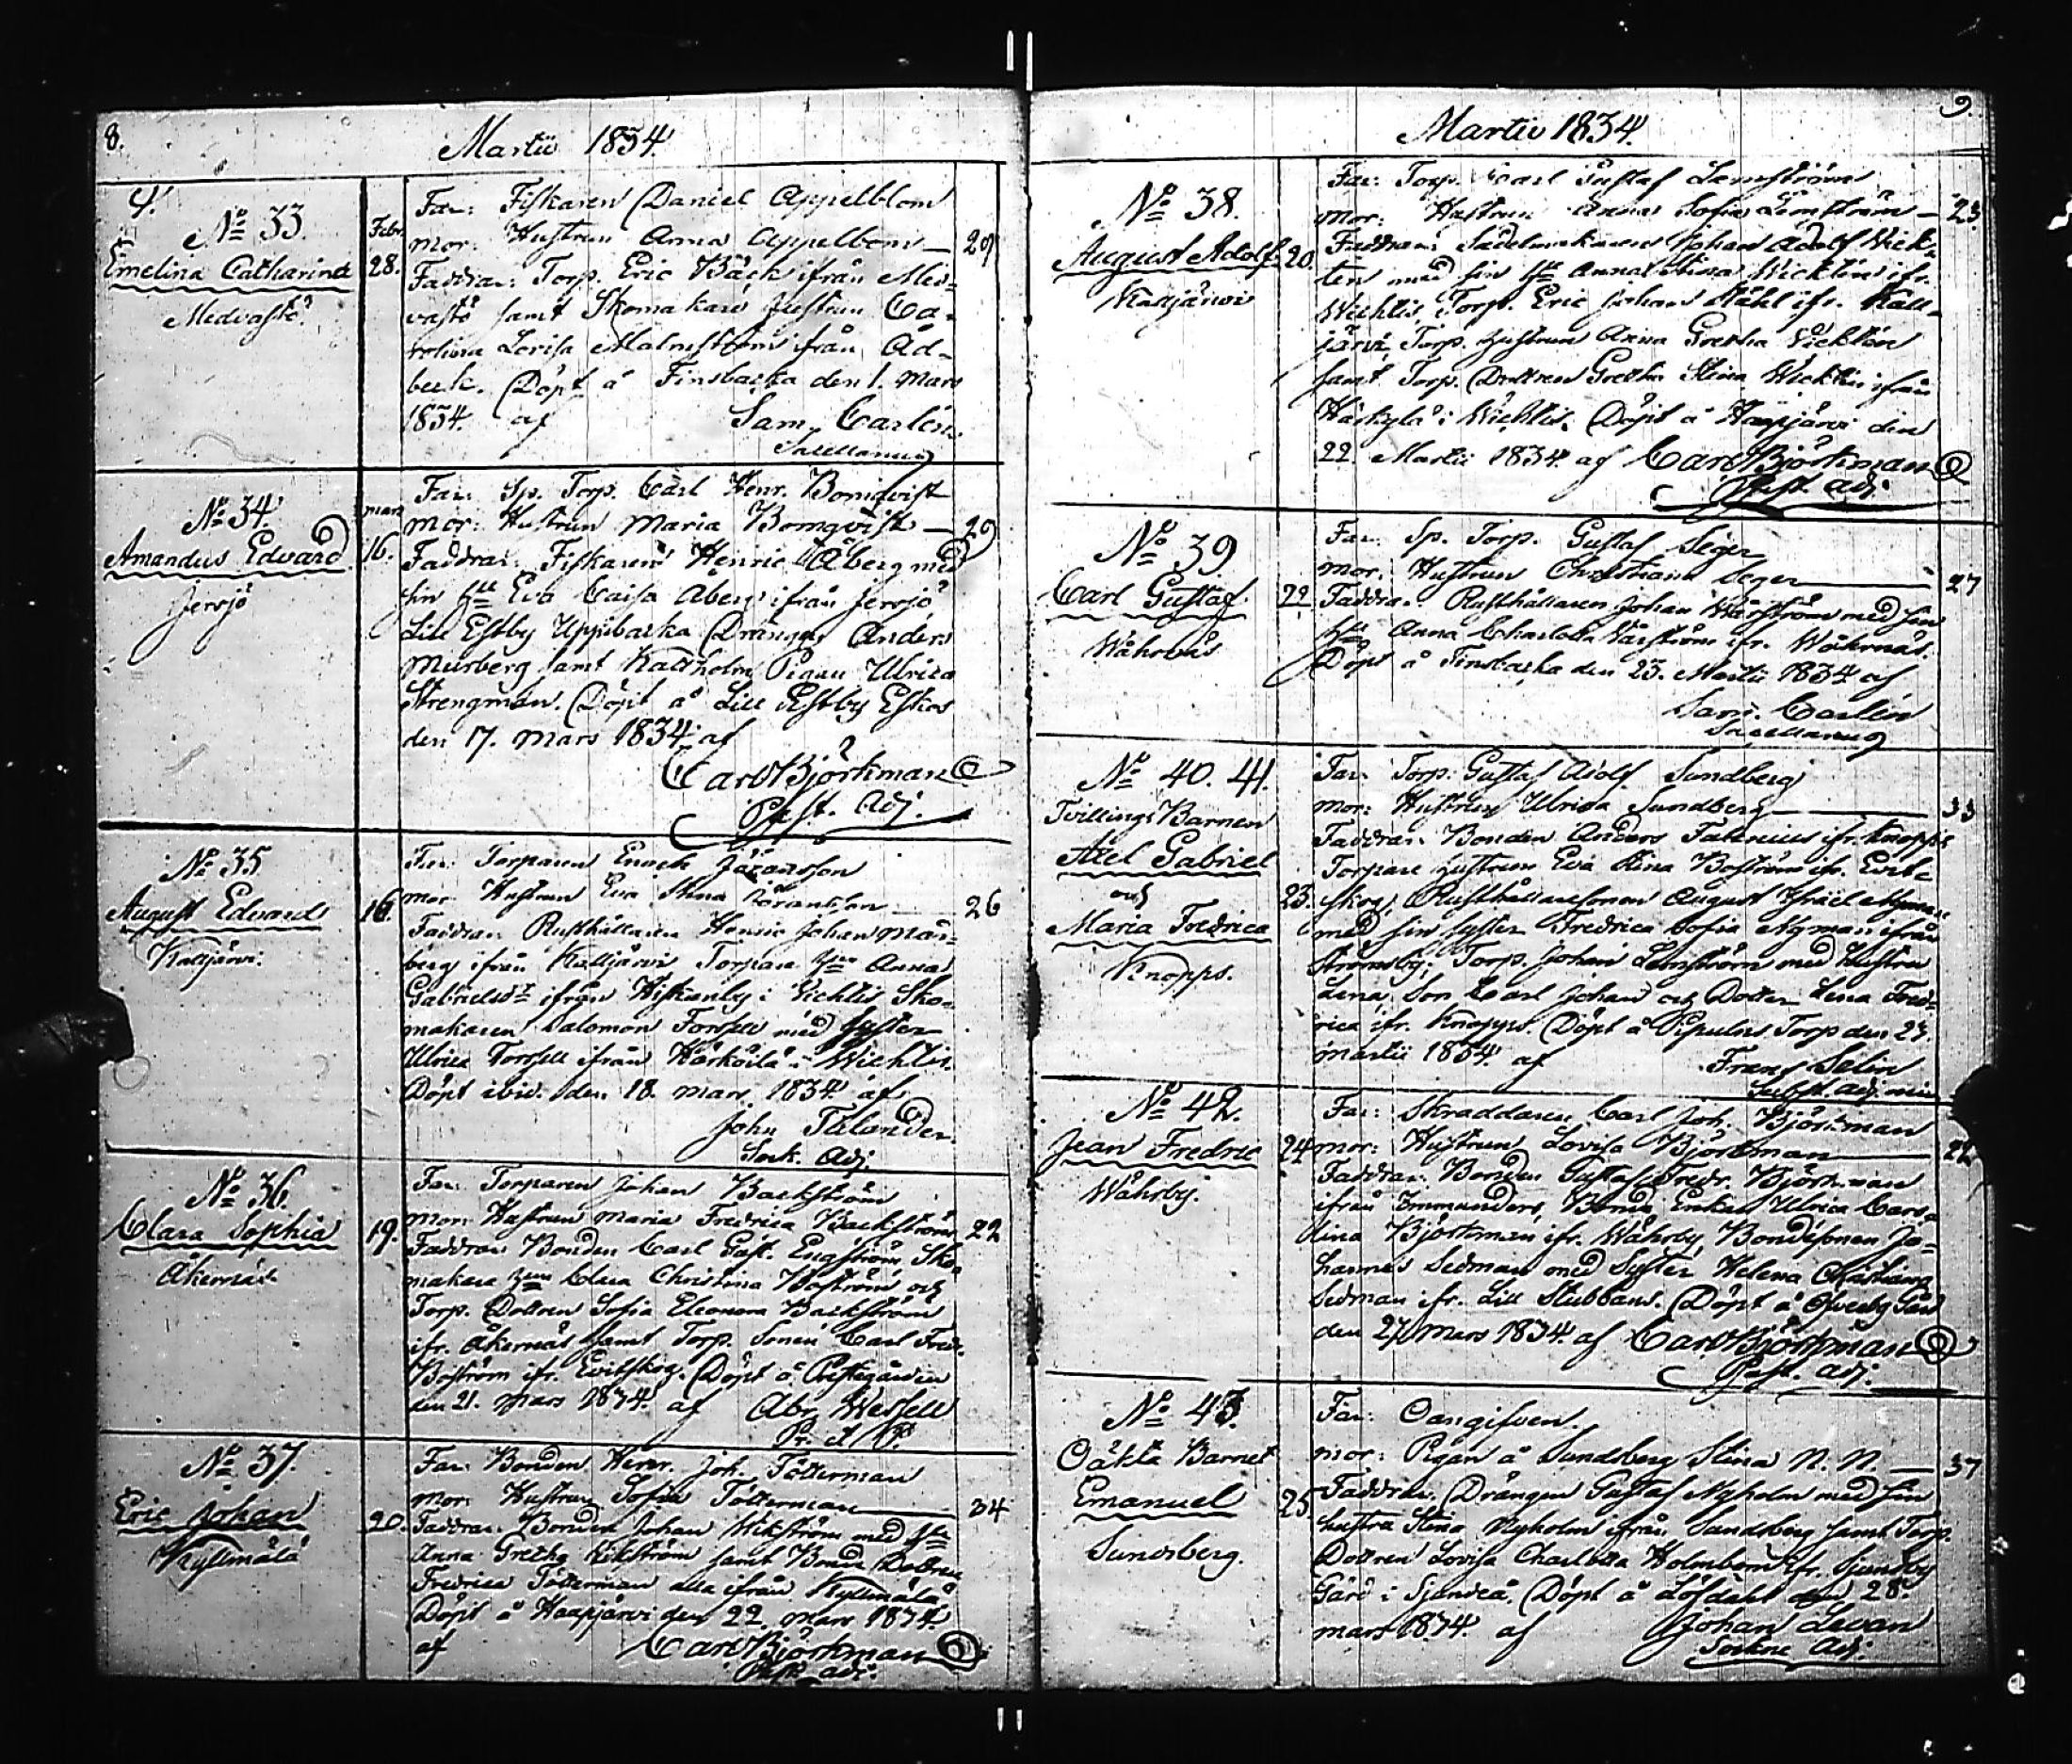 8.
Martii 1834.
4.
No 33.
Emelina Catharina
Medvastö.
Febr.
28.
Far: Fiskaren Daniel Appelblom
Mor: Hustrun Anna Appelbom — 29
Faddrar: Torp. Eric Bäck ifrån Med-
vastö samt Skomakare Hustrun Ca-
rolina Lovisa Malmström ifrån Åd-
beck. Döpt å Finsbacka den 1. Mars
1834. af Sam. Carlén.
Sacellanus
No 34.
Amandus Edvard
Jersjö
mars
16.
Far: Sp. Torp. Carl Henr. Bomqvist
Mor: Hustrun Maria Bomqvist — 29
Faddrar: Fiskaren Henric Åberg med
sin Hu Eva Caisa Åberg ifrån Jersjö
Lill Estby Uppibacka Drängen Anders
Murberg samt Kattholm Pigan Ulrica
Strengman. Döpt å Lill Estby Eskos
den 17. Mars 1834. af
Carl Björkman
Past. Adj.
No 35
August Edvard
Kattjärvi.
16.
Far: Torparen Enoch
Mor: Hustrun Eva Stina — 26
Faddrar: Rusthållaren Henric Johan Mar-
berg ifrån Kattjärvi Torpare Hun Anna
Gabrielsdr ifrån i Vichtis Sko-
makaren Salomon Forssell med Syster
Ulrica Forssell ifrån Härköilä i Wichtis.
Döpt ibid. den 18. mars 1834 af
John Thlander.
Sock. Adj.
No 36.
Clara Sophia
Åkernäs.
19.
Far: Torparen Johan Backström
Mor: Hustrun Maria Fredrica Backström 22
Faddrar: Bonden Carl Gust. Engström, Sko-
makare Hun Clara Christina Boström och
Torp. Dottren Sofia Eleonora Backström
ifr. Åkernäs samt Torp. Sonen Carl Fredr.
Boström ifr. Evitskog. Döpt å Prestegården
den 21. Mars 1834. af Abr. Wessell
Pr. & P.
No 37.
Eric Johan
Kyllmälä
20.
Far: Bonden Henr. Joh. Tötterman
Mor: Hustrun Sofia Tötterman — 34
Faddrar: Bonden Johan Wikström med Hu
Anna Gretha Wikström samt Bonde Dottren
Fredrica Tötterman alla ifrån Kyllmälä
Döpt å Haapjärvi den 22. mars 1834.
af Carl Björkman
Past. adj.
9.
Martii 1834.
No 38.
August Adolf
Kattjärvi
20.
Far: Torp. Carl Gustaf Lemström
Mor: Hustrun Anna Sofia Lemström — 23.
Faddrar: Sadelmakaren Johan Adolf Wick-
lén med sin Hu Anna Stina Wicklén ifr.
Wichtis, Torp. Eric Johan Ståhl ifr. Katt-
järvi, Torp. Hustrun Anna Gretha Wicklén
samt Torp. Dottren Gretha Stina Wicklén ifrån
i Wichtis. Döpt å Haapjärvi den
22. Martii 1834. af Carl Björkman
Past. Adj.
No 39
Carl Gustaf.
Wåhrnäs
22
Far: Sp. Torp. Gustaf Seger
Mor: Hustrun Christiana Seger — 27
Faddrar: Rusthållaren Johan Wårström med sin
Hu Anna Charlotta Wårström ifr. Wåhrnäs.
Döpt å Finsbacka den 23. Martii 1834 af
Sam. Carlén
Sacellanus
No 40. 41.
Tvillings Barnen
Axel Gabriel
och
Maria Fredrica
Knopps.
23.
Far: Torp. Gustaf Adolf Sundberg
Mor: Hustrun Ulrica Sundberg — 33
Faddrar: Bonden Anders ifr. Knopps
Torpare Hustrun Eva Stina Boström ifr. Evit-
skog, Rusthållaresonen August Israel Nyman
med sin syster Fredrica Sofia Nyman ifrån
Strömsby, Torp. Johan Lemström med Hustru
Lena, Son Carl Johan och Dotter Lena Fred-
rica ifr. Knopps. Döpt å Torp den 27.
Martii 1834. af Frans Selin
Subst. adj. min.
No 42.
Jean Fredric
Wåhrby.
24
Far: Skräddaren Carl Joh. Björkman
Mor: Hustrun Lovisa Björkman — 22
Faddrar: Bonden Gustaf Fredr. Björkman
ifrån Immunders, Bonde Enkan Ulrica Caro-
lina Björkman ifr. Wåhrby, Bondesonen Jo-
hannes Sedman med Syster Helena Christiana
Sedman ifr. Lill Stubbans. Döpt å Öfverby Gård
den 27 Mars 1834. af Carl Björkman
Past. adj.
No 43.
Oäkta Barnet
Emanuel
Sundsberg.
25.
Far: Oangifven.
Mor: Pigan å Sundsberg Stina N. N. — 37
Faddrar: Drängen Gustaf Nyholm med sin
hustru Stina Nyholm ifrån Sundsberg samt Torp.
Dottren Lovisa Charlotta Holmbom ifr. Sjundby
Gård i Sjundeå. Döpt å Löfdahl den 28.
mars 1834. af Johan Levan
Sockne Adj.